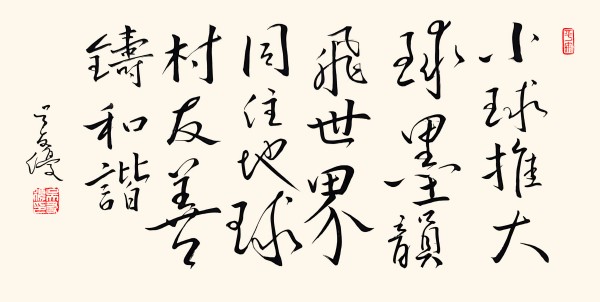 小球推大
球墨韻
飛世界
同住地球
村友善
鑄和諧
優